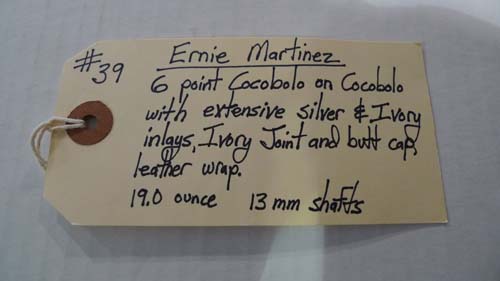 #39
Ernie Martinez
6 point Cocobolo on Cocobolo
with extensive silver & Ivory
inlays, Ivory Joint and butt cap,
leather wrap.
19.0 ounce 13 mm shafts